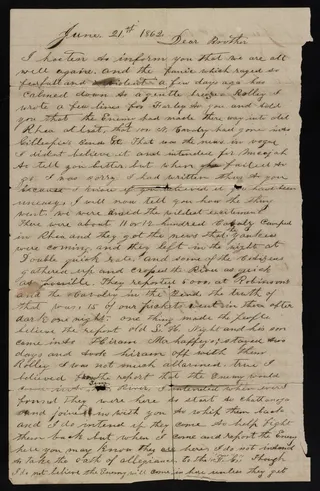 June 21st 1862
Dear Brother
I hasten to inform you that we are all
well again. and the panic which raged so
fearfull and violent a few days ago has
calmed down to a gentle breeze Rolley I
wrote a few lines for Farley to you and told
you that the Enemy had made there way into old
Rhea at last, that
Gillespies
I didnt believe it and intended for
to tell you better but when
go. I was sorry I had written them to you
because I knew if you believed it you have been
uneasy I will now tell you how the thing
went we were
There were about 11 or 12 hundred Cavalry Camped
in Rhea and they got the that Yankees
were coming and they left in the night at
Double quick rate and some of the Citizens
gathered up and crossed the River as quick
as possible. They reported 5000 at Robinsons
and the Cavalry in the the truth of
that was 15 of our pickets went in there after
dark one night. one thing made the people
believe the report old S. H. Night and his son
came into Hiram stayed two
days and took hiram off with them
Rolley I was not much allarmed true I
believed the report that the Enemy would
come River. I intended when ever I
found they were here to start to chattanoga
and join in with you to whip them back
and I do intend if they come to help fight
them back but when I come and report the Enemy
here you may know they are here I do not intend
to take the oath of allegiance to the Though
I do not believe the Enemy will come in here unless they get